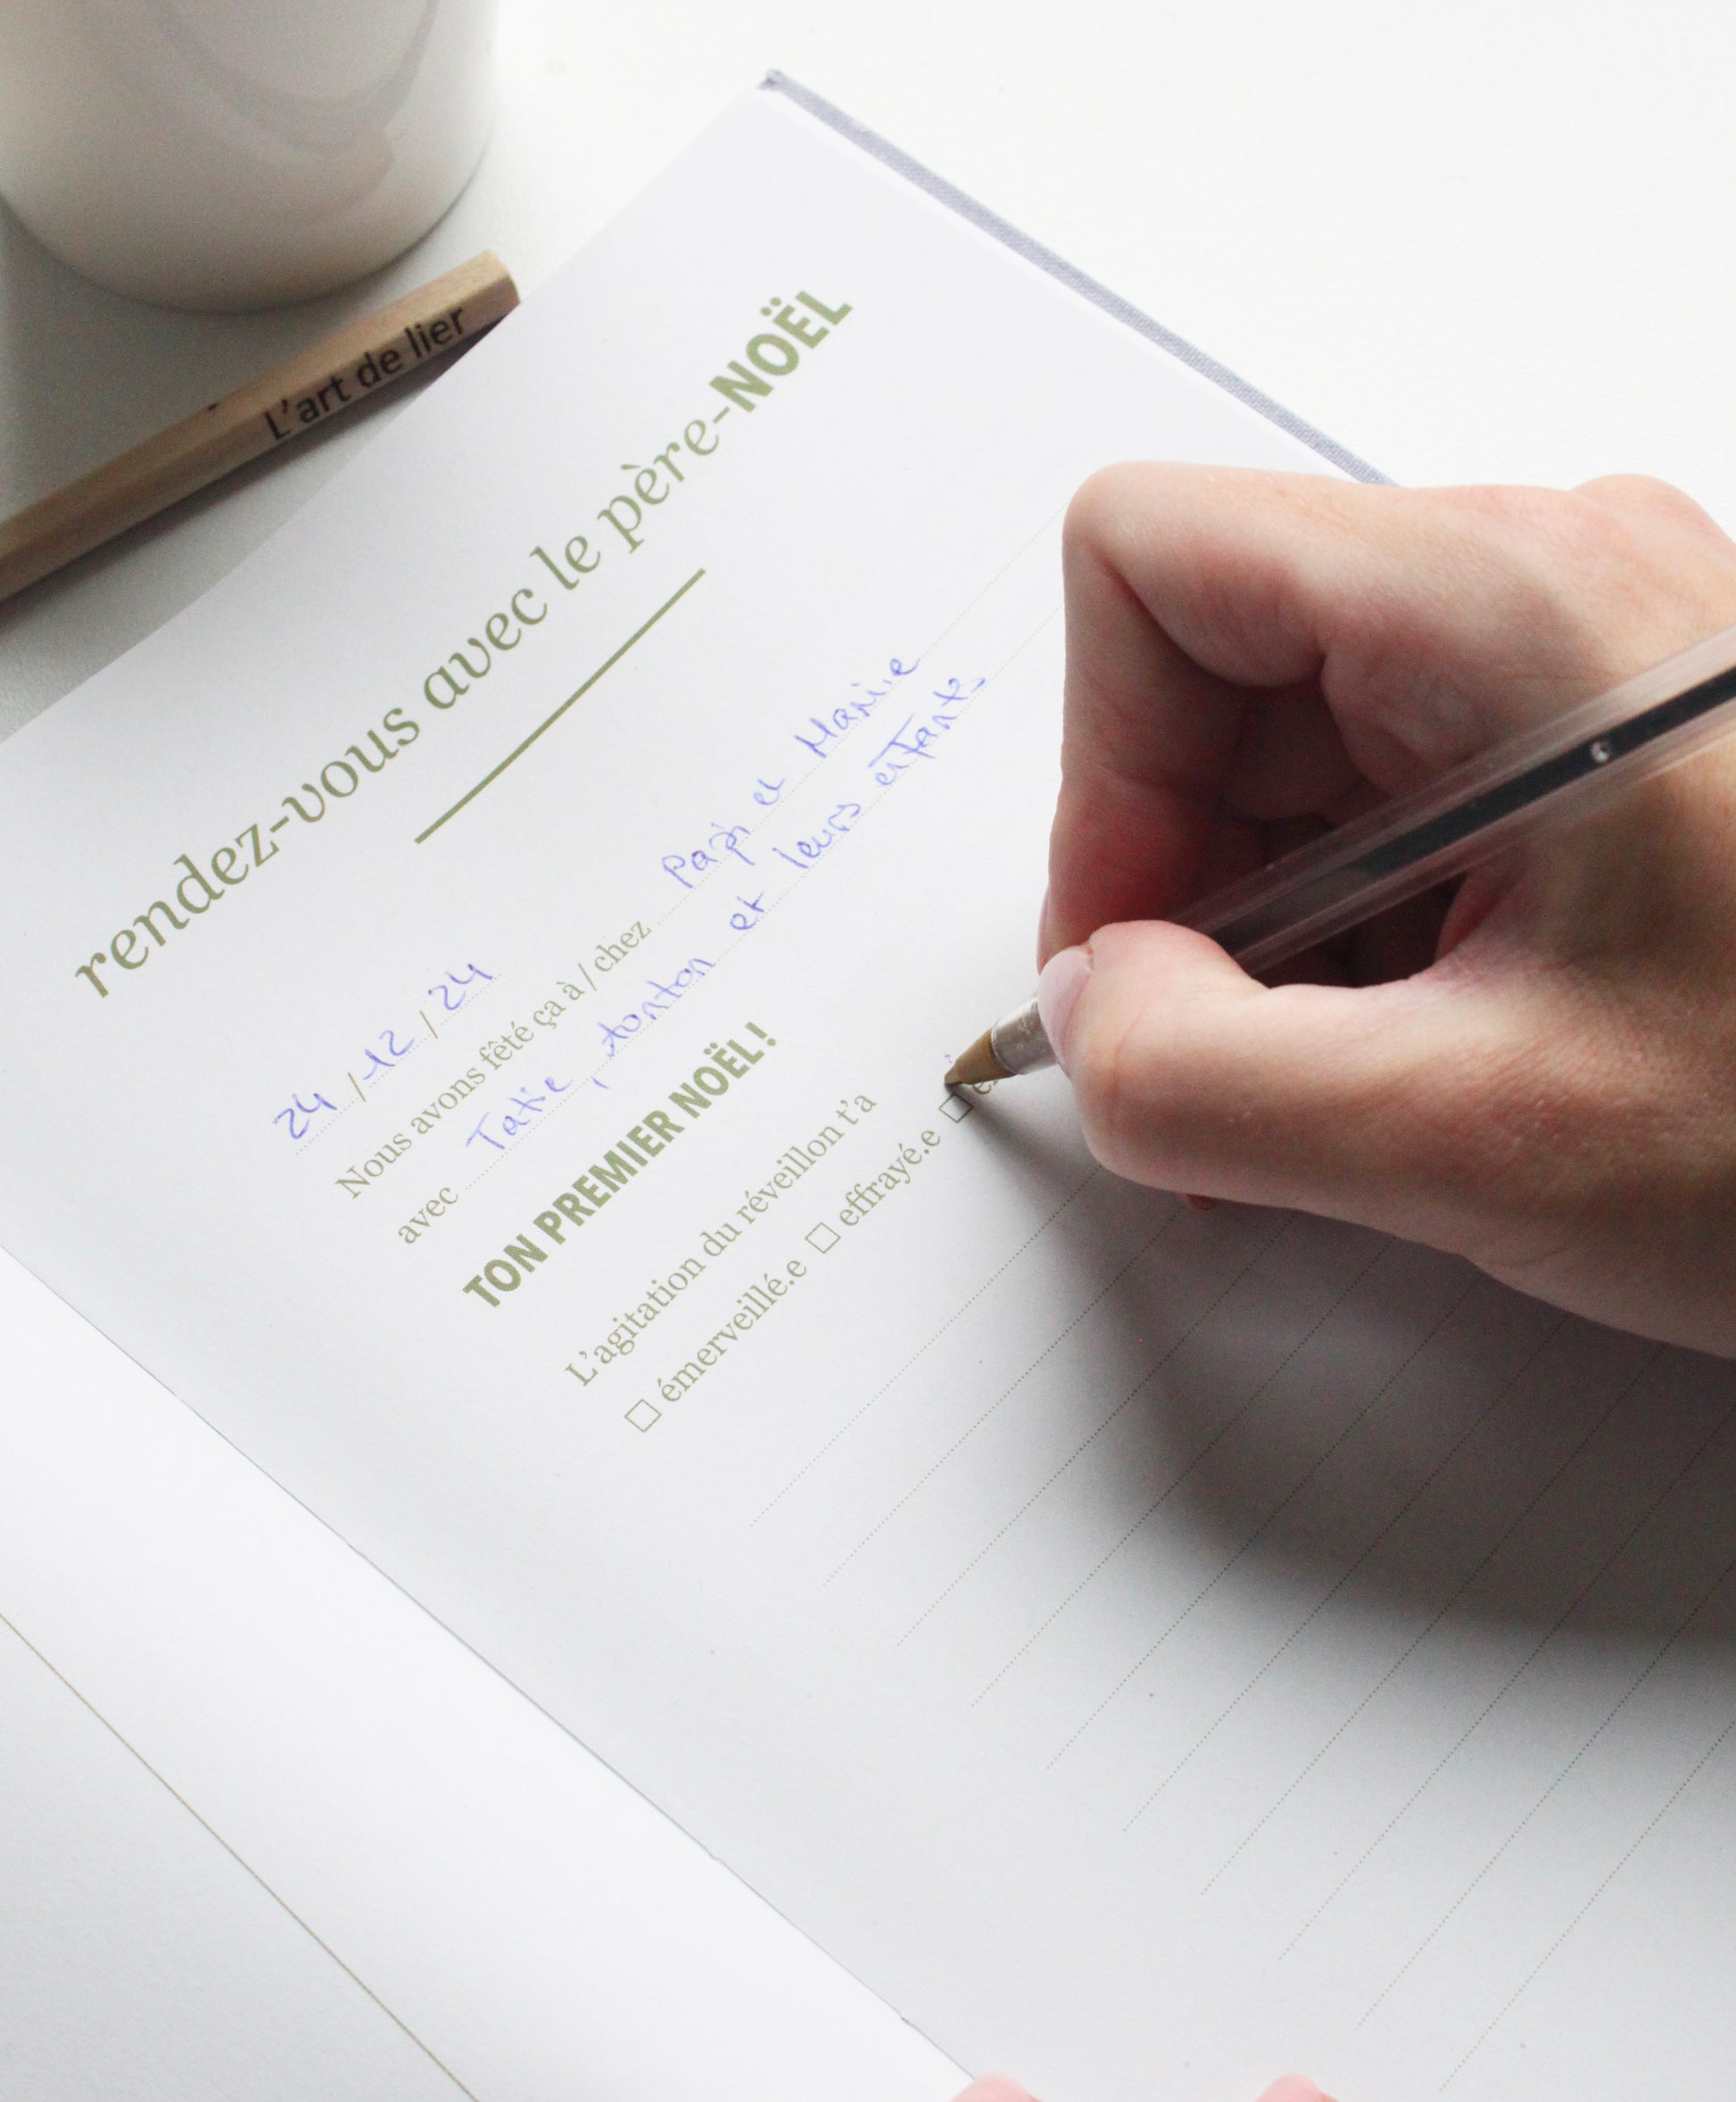 L'art de lier
rendez-vous avec le père-NOËL
24 / 12 / 24
Nous avons fêté ça à / chez Papi et Mamie
avec Tatie, tonton et leurs enfants
TON PREMIER NOËL!
L'agitation du réveillon t'a
☐ émerveillé.e ☐ effrayé.e ☐